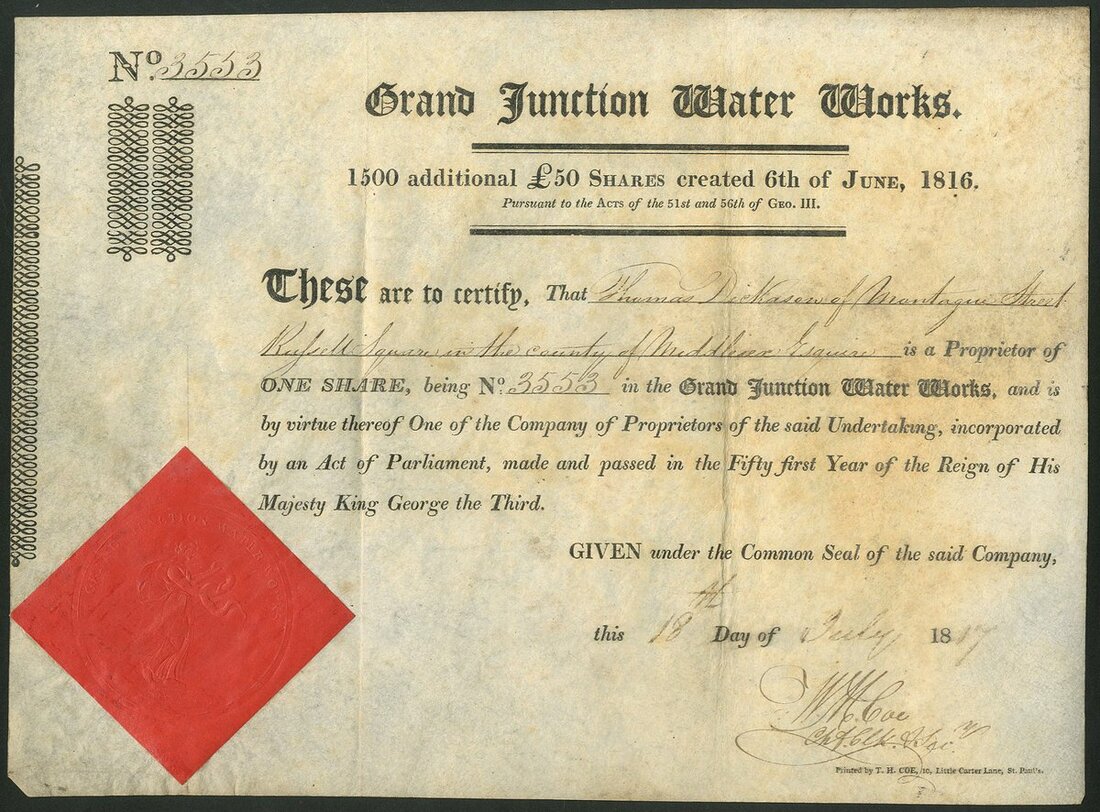 No. 3553
Grand Junction Water Works.
1500 additional £50 SHARES created 6th of JUNE, 1816.
Pursuant to the ACTS of the 51st and 56th of GEO. III.
These are to certify, That Thomas Dickason of Montague Street
Russell Square in the county of Middlesex Esquire is a Proprietor of
ONE SHARE, being No. 3553 in the Grand Junction Water Works, and is
by virtue thereof One of the Company of Proprietors of the said Undertaking, incorporated
by an Act of Parliament, made and passed in the Fifty first Year of the Reign of His
Majesty King George the Third.
GIVEN under the Common Seal of the said Company,
this 18th Day of July 1817
W. M. Coe
Ch. Clk. & Sec.y
Printed by T. H. COE, 10, Little Carter Lane, St. Paul's.